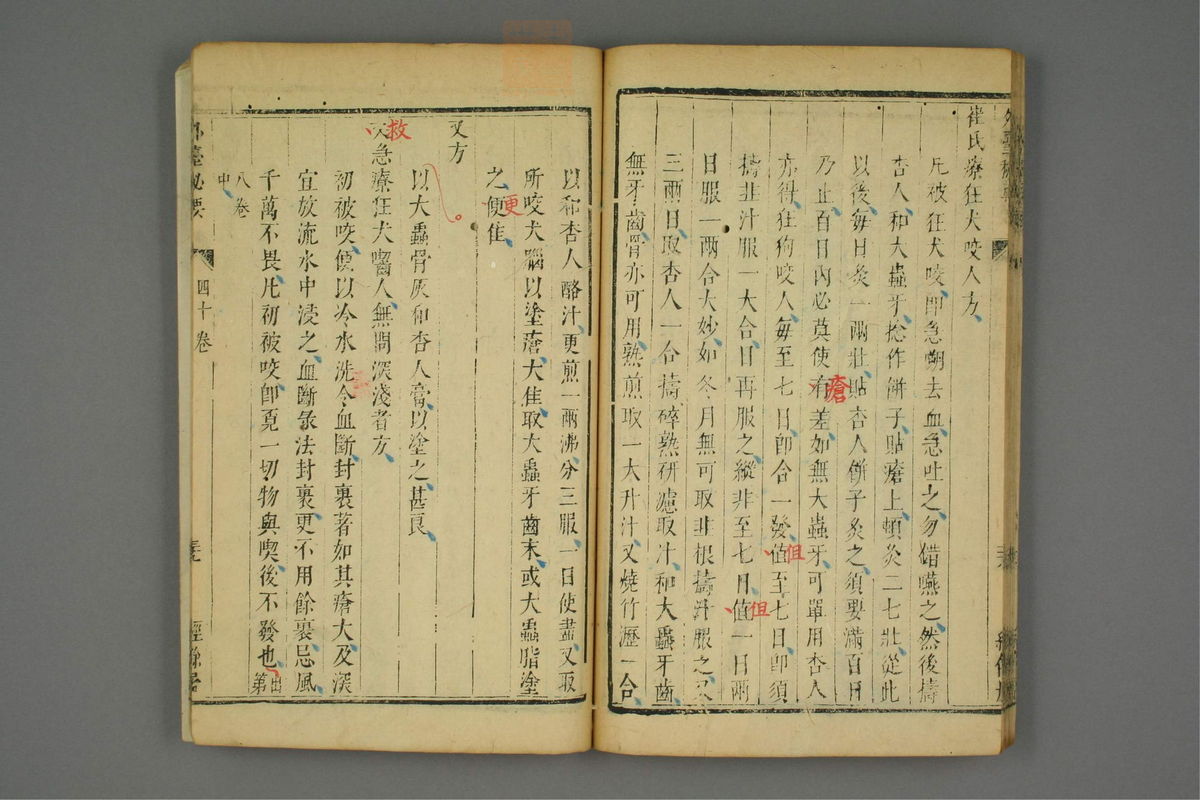 崔氏療狂犬咬人方
凡被狂犬咬即急嗍去血急吐之勿錯嚥之然後擣
杏人和大蟲牙捻作餅子貼瘡上頓灸二七壯從此
以後每日灸一兩壯貼杏人餅子灸之須要滿百日
乃止百日內必莫使有差如無大蟲牙可單用杏人
瘡
亦得狂狗咬人每至七日即合一發值至七日即須
但
擣韭汁服一大合日再服之縱非至七日值一日兩
但
日服一兩合大妙如冬月無可取韭根擣汁服之又
三兩日取杏人一合擣碎熟研濾取汁和大蟲牙齒
無牙齒骨亦可用熟煎取一大升汁又燒竹瀝一合
以和杏人酪汁更煎一兩沸分三服一日使盡又取
所咬犬腦以塗瘡大佳取大蟲牙齒末或大蟲脂塗
之便佳
更
又方
以大蟲骨灰和杏人膏以塗之甚良
又急療狂犬嚙人無問深淺者方
救
初被咬便以冷水洗令血斷封裹著如其瘡大及深
宜放流水中浸之血斷彔法封裹更不用餘裹忌風
千萬不畏凡初被咬即覓一切物與喫後不發也出第
八卷中
外臺祕要
四十卷
三七
經餘居